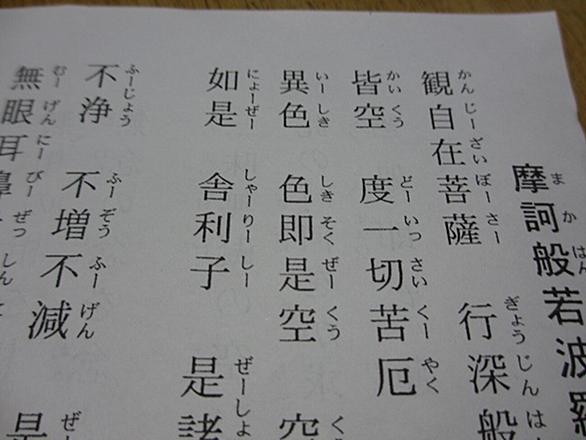 まかはん
摩訶般若波羅
かんじーざいぼーさー ぎょうじんは
観自在菩薩 行深般
かいくう どーいっさいくーやく
皆空 度一切苦厄
いーしき しきそくぜーくう く
異色 色即是空 空
にょーぜー しゃーりーしー ぜーしょ
如是 舎利子 是諸
ふーじょう ふーぞうふーげん ぜ
不浄 不増不減 是
むーげんにーびーぜっしん
無眼耳鼻